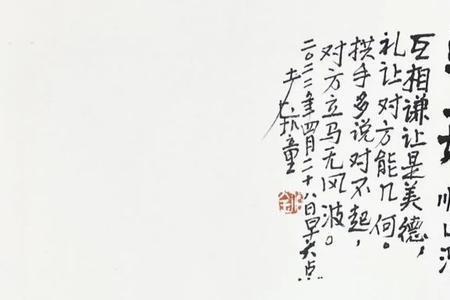 互相谦让是美德，
礼让对方能几何。
拱手多说对不起，
对方立马无风波。
二〇二三年四月二十八日早六点
童